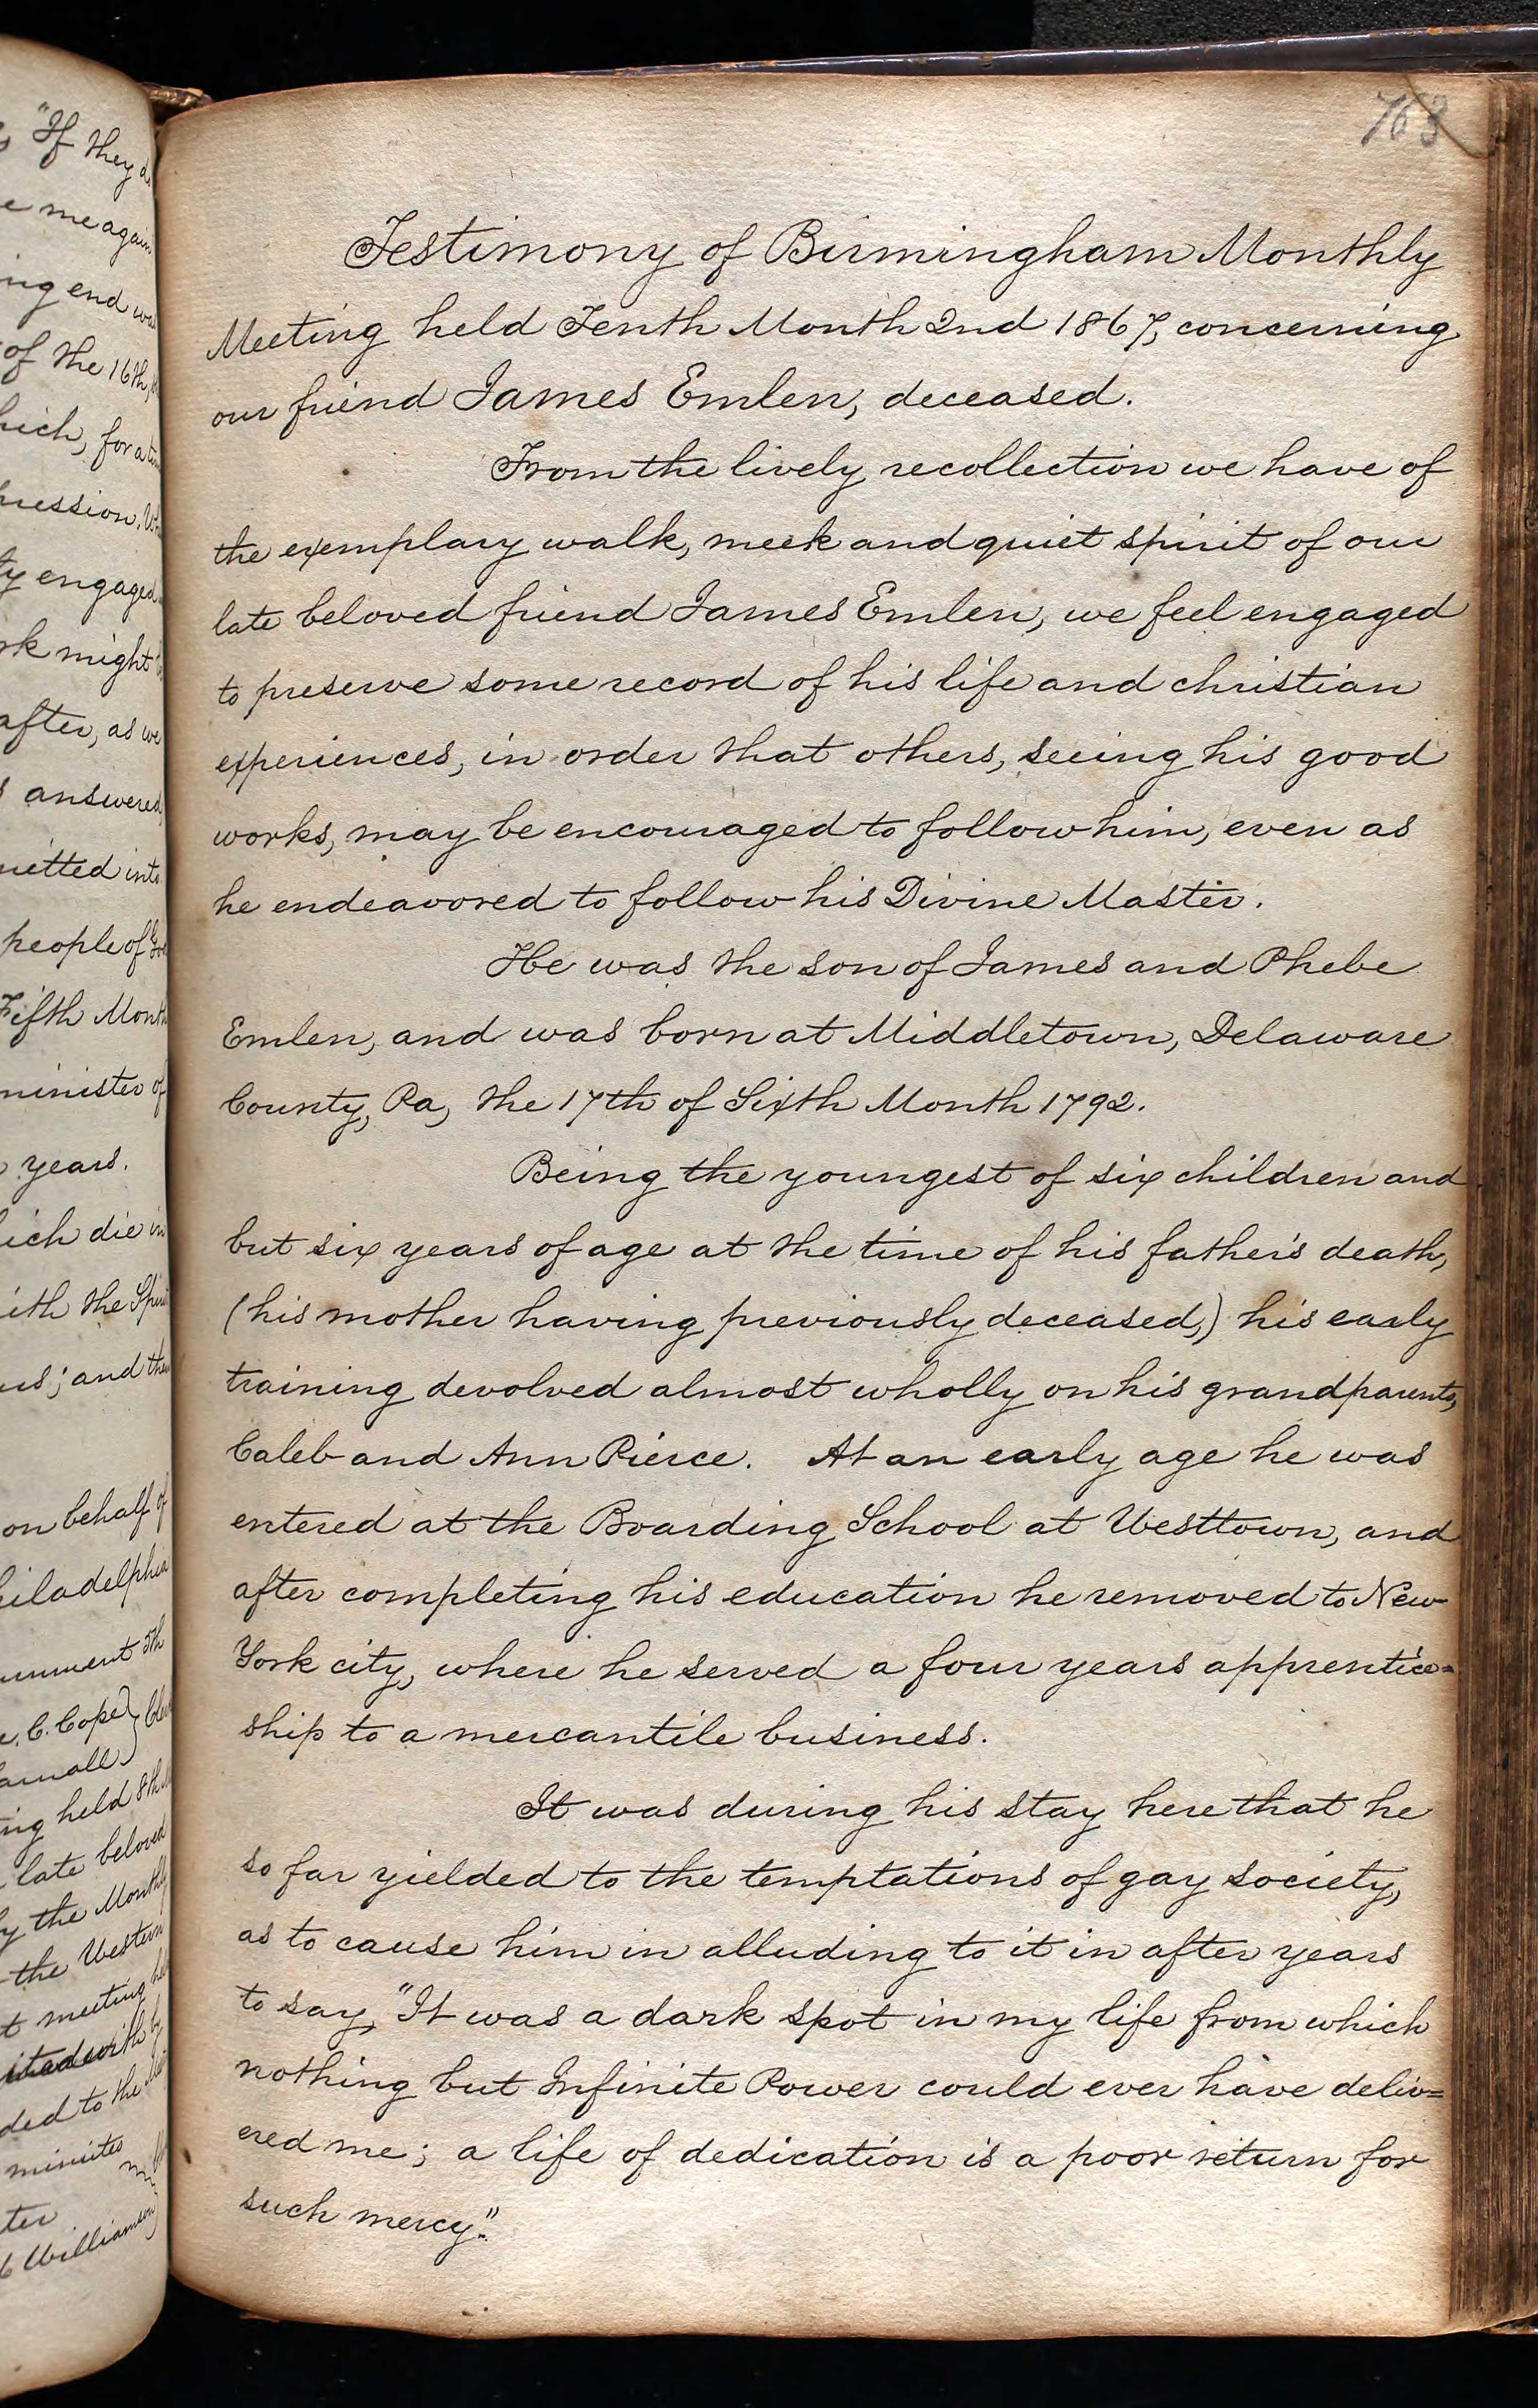 "If they
me again
ing end
of the 16th,
hich, for a
pression.
ty engaged
rk might
after, as we
answered
mitted into
people of
Fifth Month
minister of
years.
ich die in
ith the
us; and
on behalf of
hiladelphia
C. Cope
ing held 8th
late beloved
y the Monthly
the Western
t meeting
ded to the
minutes
ter
Williamson
763
Testimony of Birmingham Monthly
Meeting held Tenth Month 2nd 1867, concerning
our friend James Emlen, deceased.
From the lively recollection we have of
the exemplary walk, meek and quiet spirit of our
late beloved friend James Emlen, we feel engaged
to preserve some record of his life and christian
experiences, in order that others, seeing his good
works, may be encouraged to follow him, even as
he endeavored to follow his Divine Master.
He was the son of James and Phebe
Emlen, and was born at Middletown, Delaware
County, Pa, the 17th of Sixth Month 1792.
Being the youngest of six children and
but six years of age at the time of his father's death,
(his mother having previously deceased,) his early
training devolved almost wholly on his grandparents,
Caleb and Ann Pierce. At an early age he was
entered at the Boarding School at Westtown, and
after completing his education he removed to New
York city, where he served a four years apprentice=
ship to a mercantile business.
It was during his stay here that he
so far yielded to the temptations of gay society,
as to cause him in alluding to it in after years
to say, "It was a dark spot in my life from which
nothing but Infinite Power could ever have deliv=
ered me; a life of dedication is a poor return for
such mercy."